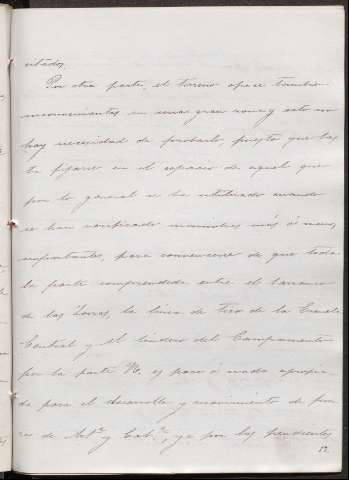 citados.
Por otra parte, el terreno ofrece tambien
inconvenientes en una gran zona y esto no
hay necesidad de probarlo, puesto que bas
ta fijarse en el espacio de aquel que
por lo general se ha utilizado cuando
se han verificado maniobras más ó menos
importantes, para convencerse de que toda
la parte comprendida entre el barranco
de las Zorras, la linea de Tiro de la Escuela
Central y el lindero del Campamento
por la parte N. es poco ó nada apropia
da para el desarrollo y movimiento de fuer
zas de Art.ª y Cab.ª, ya por las pendientes
12